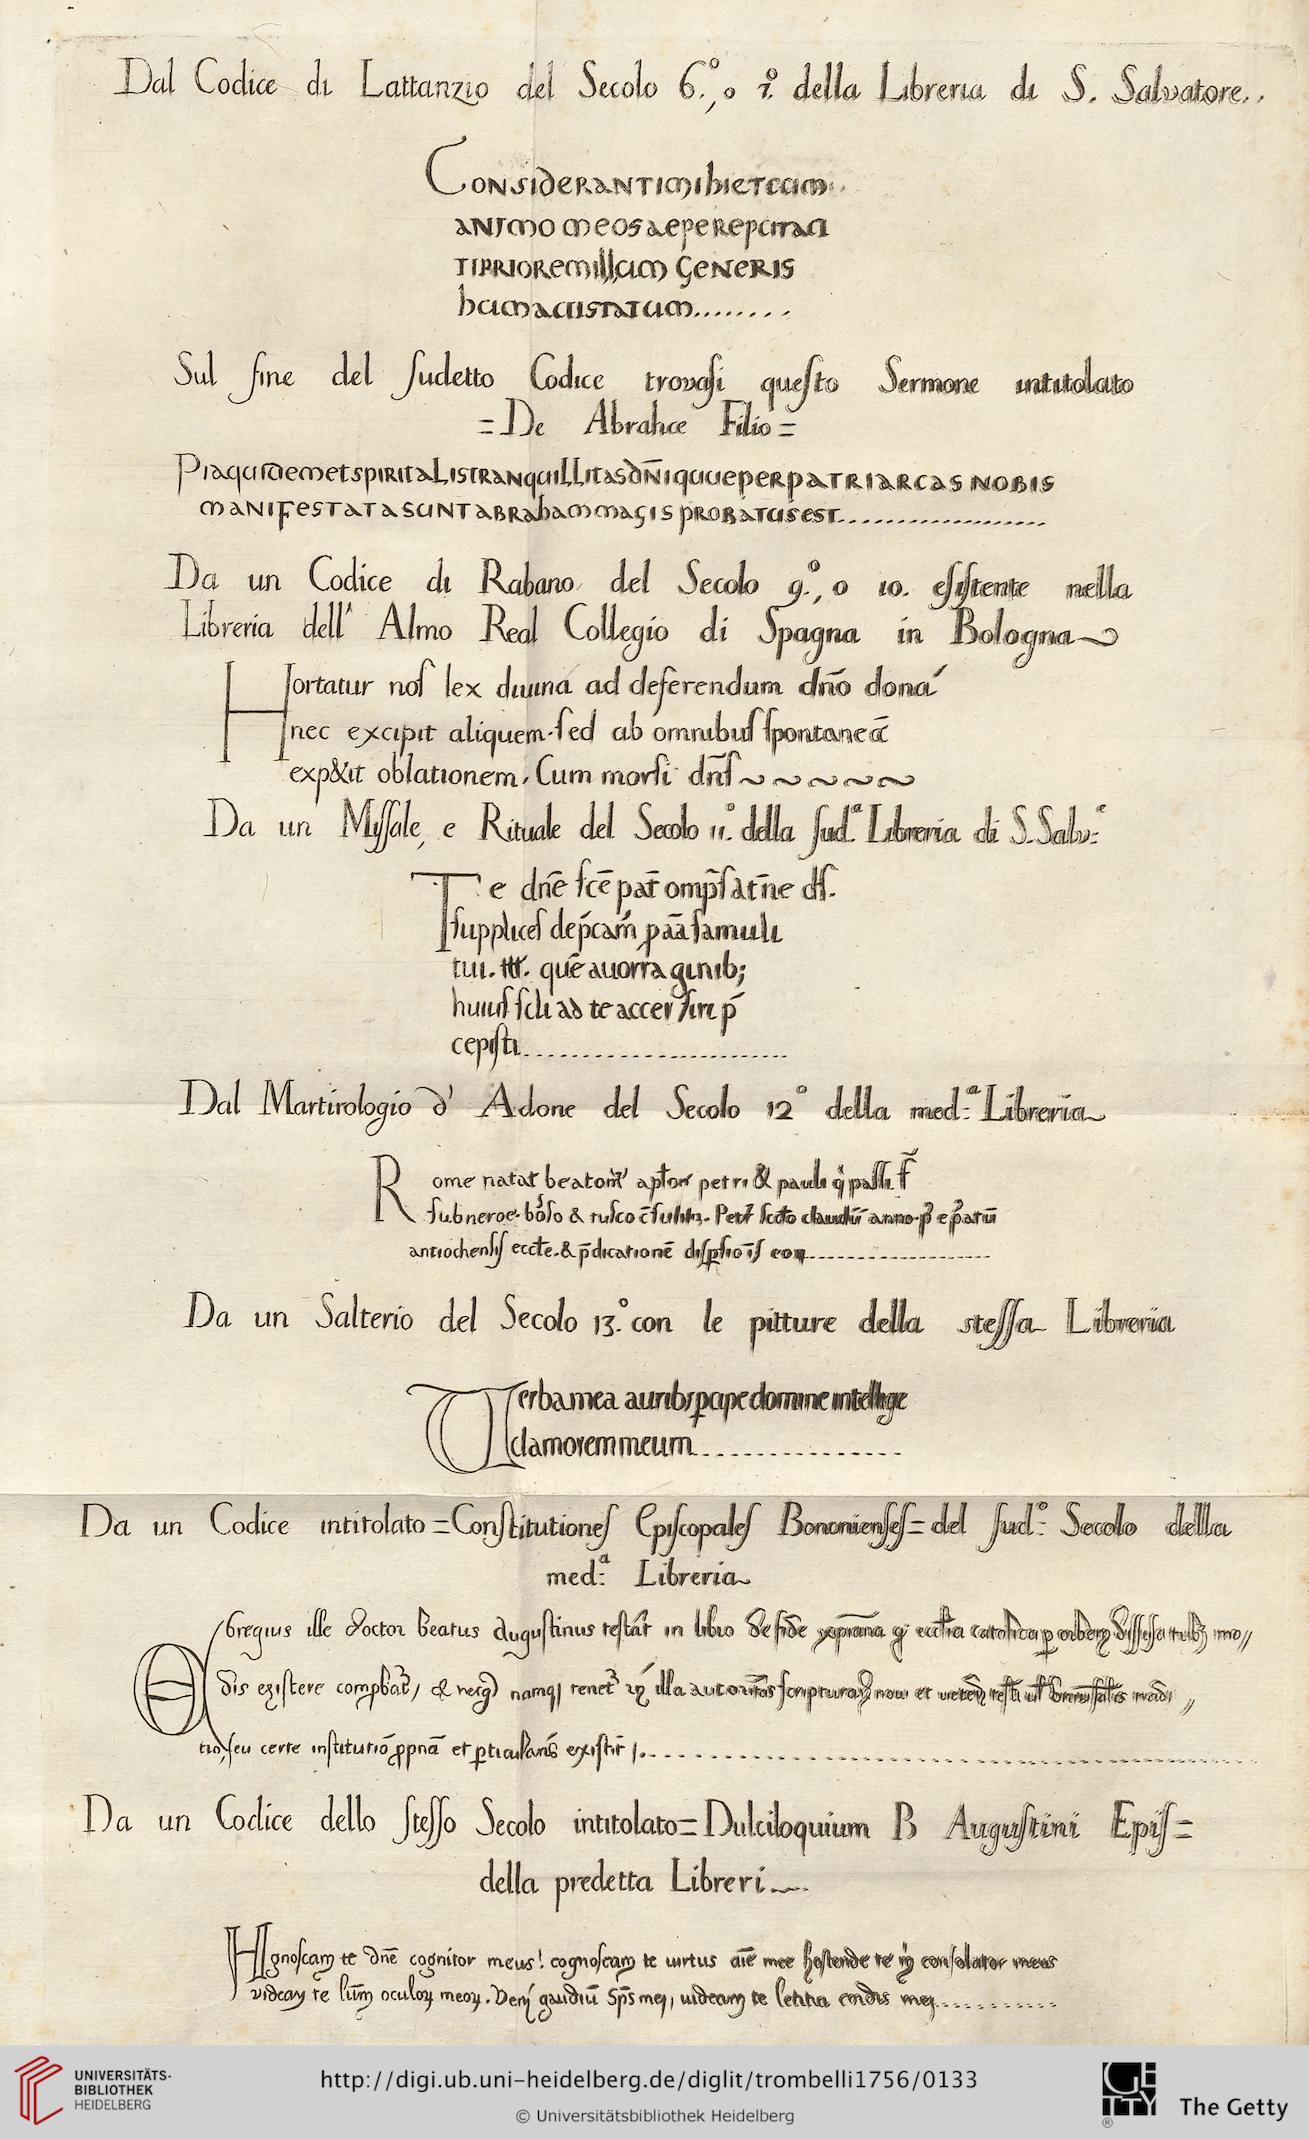 Dal Codice di Lattanzio del Secolo 6.º, o 7.º della Libreria di S. Salvatore..
Considerantimihietcum
animomeosaepereputan
tiprioremillum generis
humanistatum........
Sul fine del sudetto Codice trovasi questo Sermone intitolato
=De Abrahæ Filio=
Piaquidemetspiritalistranquillitasdn̄iquueperpatriarcas nobis
manifestatasuntabrahammagis probatusest....................
Da un Codice di Rabano del Secolo 9.º, o 10. esistente nella
Libreria dell' Almo Real Collegio di Spagna in Bologna
Hortatur nos lex diuina ad deferendum dn̄o dona
nec excipit aliquem·sed ab omnibus spontaneā
exp&it oblationem. Cum morsi dn̄s ~ ~ ~ ~ ~
Da un Missale, e Rituale del Secolo 11.º della sud.ª Libreria di S. Salv.ᵉ
Te dn̄e sc̄e pat̄ omp̄s ætn̄e ds̄.
supplices dep̄cam̄ famuli
tui. quē
huius scli ad te accersiri p̄
cepisti........................
Dal Martirologio d' Adone del Secolo 12º della med.ª Libreria
Rome natat beator petri & pauli passi
subneroe· & tusco anno
antiochensis eccle·& p̄dicationē
Da un Salterio del Secolo 13.º con le pitture della stessa Libreria
Uerbamea auribspcipedomineintellige
clamoremmeum................
Da un Codice intitolato=Constitutiones Episcopales Bononienses=del sud.º Secolo della
med.ª Libreria
Egregius ille doctor beatus augustinus in libro de fide catolica
dis existere illa et
seu certe existit
Da un Codice dello stesso Secolo intitolato=Dulciloquium B Augustini Epis=
della predetta Libreri
gnoscam te dn̄e cognitor meus! cognoscam te uirtus aīe mee hostende te consolator meus
videam te oculor meor. Veni gaudiū sp̄s mei, uideam te letitia cordis mei............
UNIVERSITÄTS-
BIBLIOTHEK
HEIDELBERG
http://digi.ub.uni-heidelberg.de/diglit/trombelli1756/0133
© Universitätsbibliothek Heidelberg
GETTY
The Getty